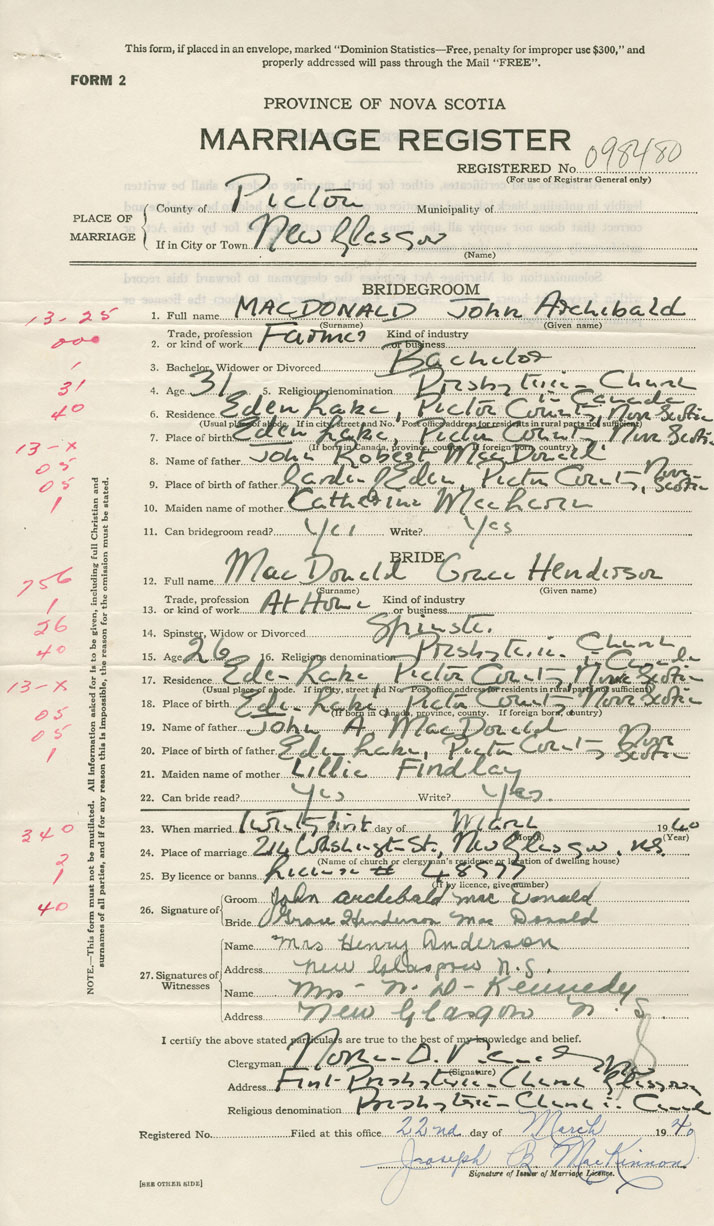 This form, if placed in an envelope, marked "Dominion Statistics—Free, penalty for improper use $300," and
properly addressed will pass through the Mail "FREE".
FORM 2
PROVINCE OF NOVA SCOTIA
MARRIAGE REGISTER
REGISTERED No. 098480
(For use of Registrar General only)
PLACE OF MARRIAGE
County of Pictou Municipality of
If in City or Town New Glasgow
(Name)
BRIDEGROOM
13-25 1. Full name MACDONALD John Archibald
(Surname) (Given name)
000 2. Trade, profession or kind of work Farmer Kind of industry or business
1 3. Bachelor, Widower or Divorced Bachelor
31 4. Age 31 5. Religious denomination Presbyterian Church in Canada
40 6. Residence Eden Lake, Pictou County, Nova Scotia
(Usual place of abode. If in city, street and No. Post office address for residents in rural parts not sufficient)
7. Place of birth Eden Lake, Pictou County, Nova Scotia
(If born in Canada, province, county. If foreign born, country)
13-X 8. Name of father John Robert MacDonald
05 9. Place of birth of father Garden of Eden, Pictou County, Nova Scotia
05 10. Maiden name of mother Catherine
1 11. Can bridegroom read? Yes Write? Yes
BRIDE
12. Full name MacDonald Grace Henderson
(Surname) (Given name)
756 13. Trade, profession or kind of work At Home Kind of industry or business
1 14. Spinster, Widow or Divorced Spinster
26 15. Age 26 16. Religious denomination Presbyterian Church in Canada
40 17. Residence Eden Lake, Pictou County, Nova Scotia
(Usual place of abode. If in city, street and No. Post office address for residents in rural parts not sufficient)
13-X 18. Place of birth Eden Lake, Pictou County, Nova Scotia
(If born in Canada, province, county. If foreign born, country)
05 19. Name of father John A. MacDonald
05 20. Place of birth of father Eden Lake, Pictou County Nova Scotia
1 21. Maiden name of mother Lillie Findlay
22. Can bride read? Yes Write? Yes.
23. When married Twenty first day of March 1940
(Month) (Year)
340 24. Place of marriage 214 Washington St., New Glasgow, N.S.
(Name of church or clergyman's residence or location of dwelling house)
2 25. By licence or banns License # 48977
(If by licence, give number)
1 26. Signature of
Groom John Archibald Mac Donald
40 Bride Grace Henderson Mac Donald
27. Signatures of Witnesses
Name Mrs Henry Anderson
Address New Glasgow N.S.
Name Mrs - N - D - Kennedy
Address New Glasgow N. S.
I certify the above stated particulars are true to the best of my knowledge and belief.
Clergyman Norman D. Kennedy
(Signature)
Address First Presbyterian Church New Glasgow
Religious denomination Presbyterian Church in Canada
Registered No. Filed at this office 22nd day of March 1940
Joseph B. MacKinnon
Signature of Issuer of Marriage Licence.
[SEE OTHER SIDE]
NOTE.—This form must not be mutilated. All information asked for is to be given, including full Christian and
surnames of all parties, and if for any reason this is impossible, the reason for the omission must be stated.